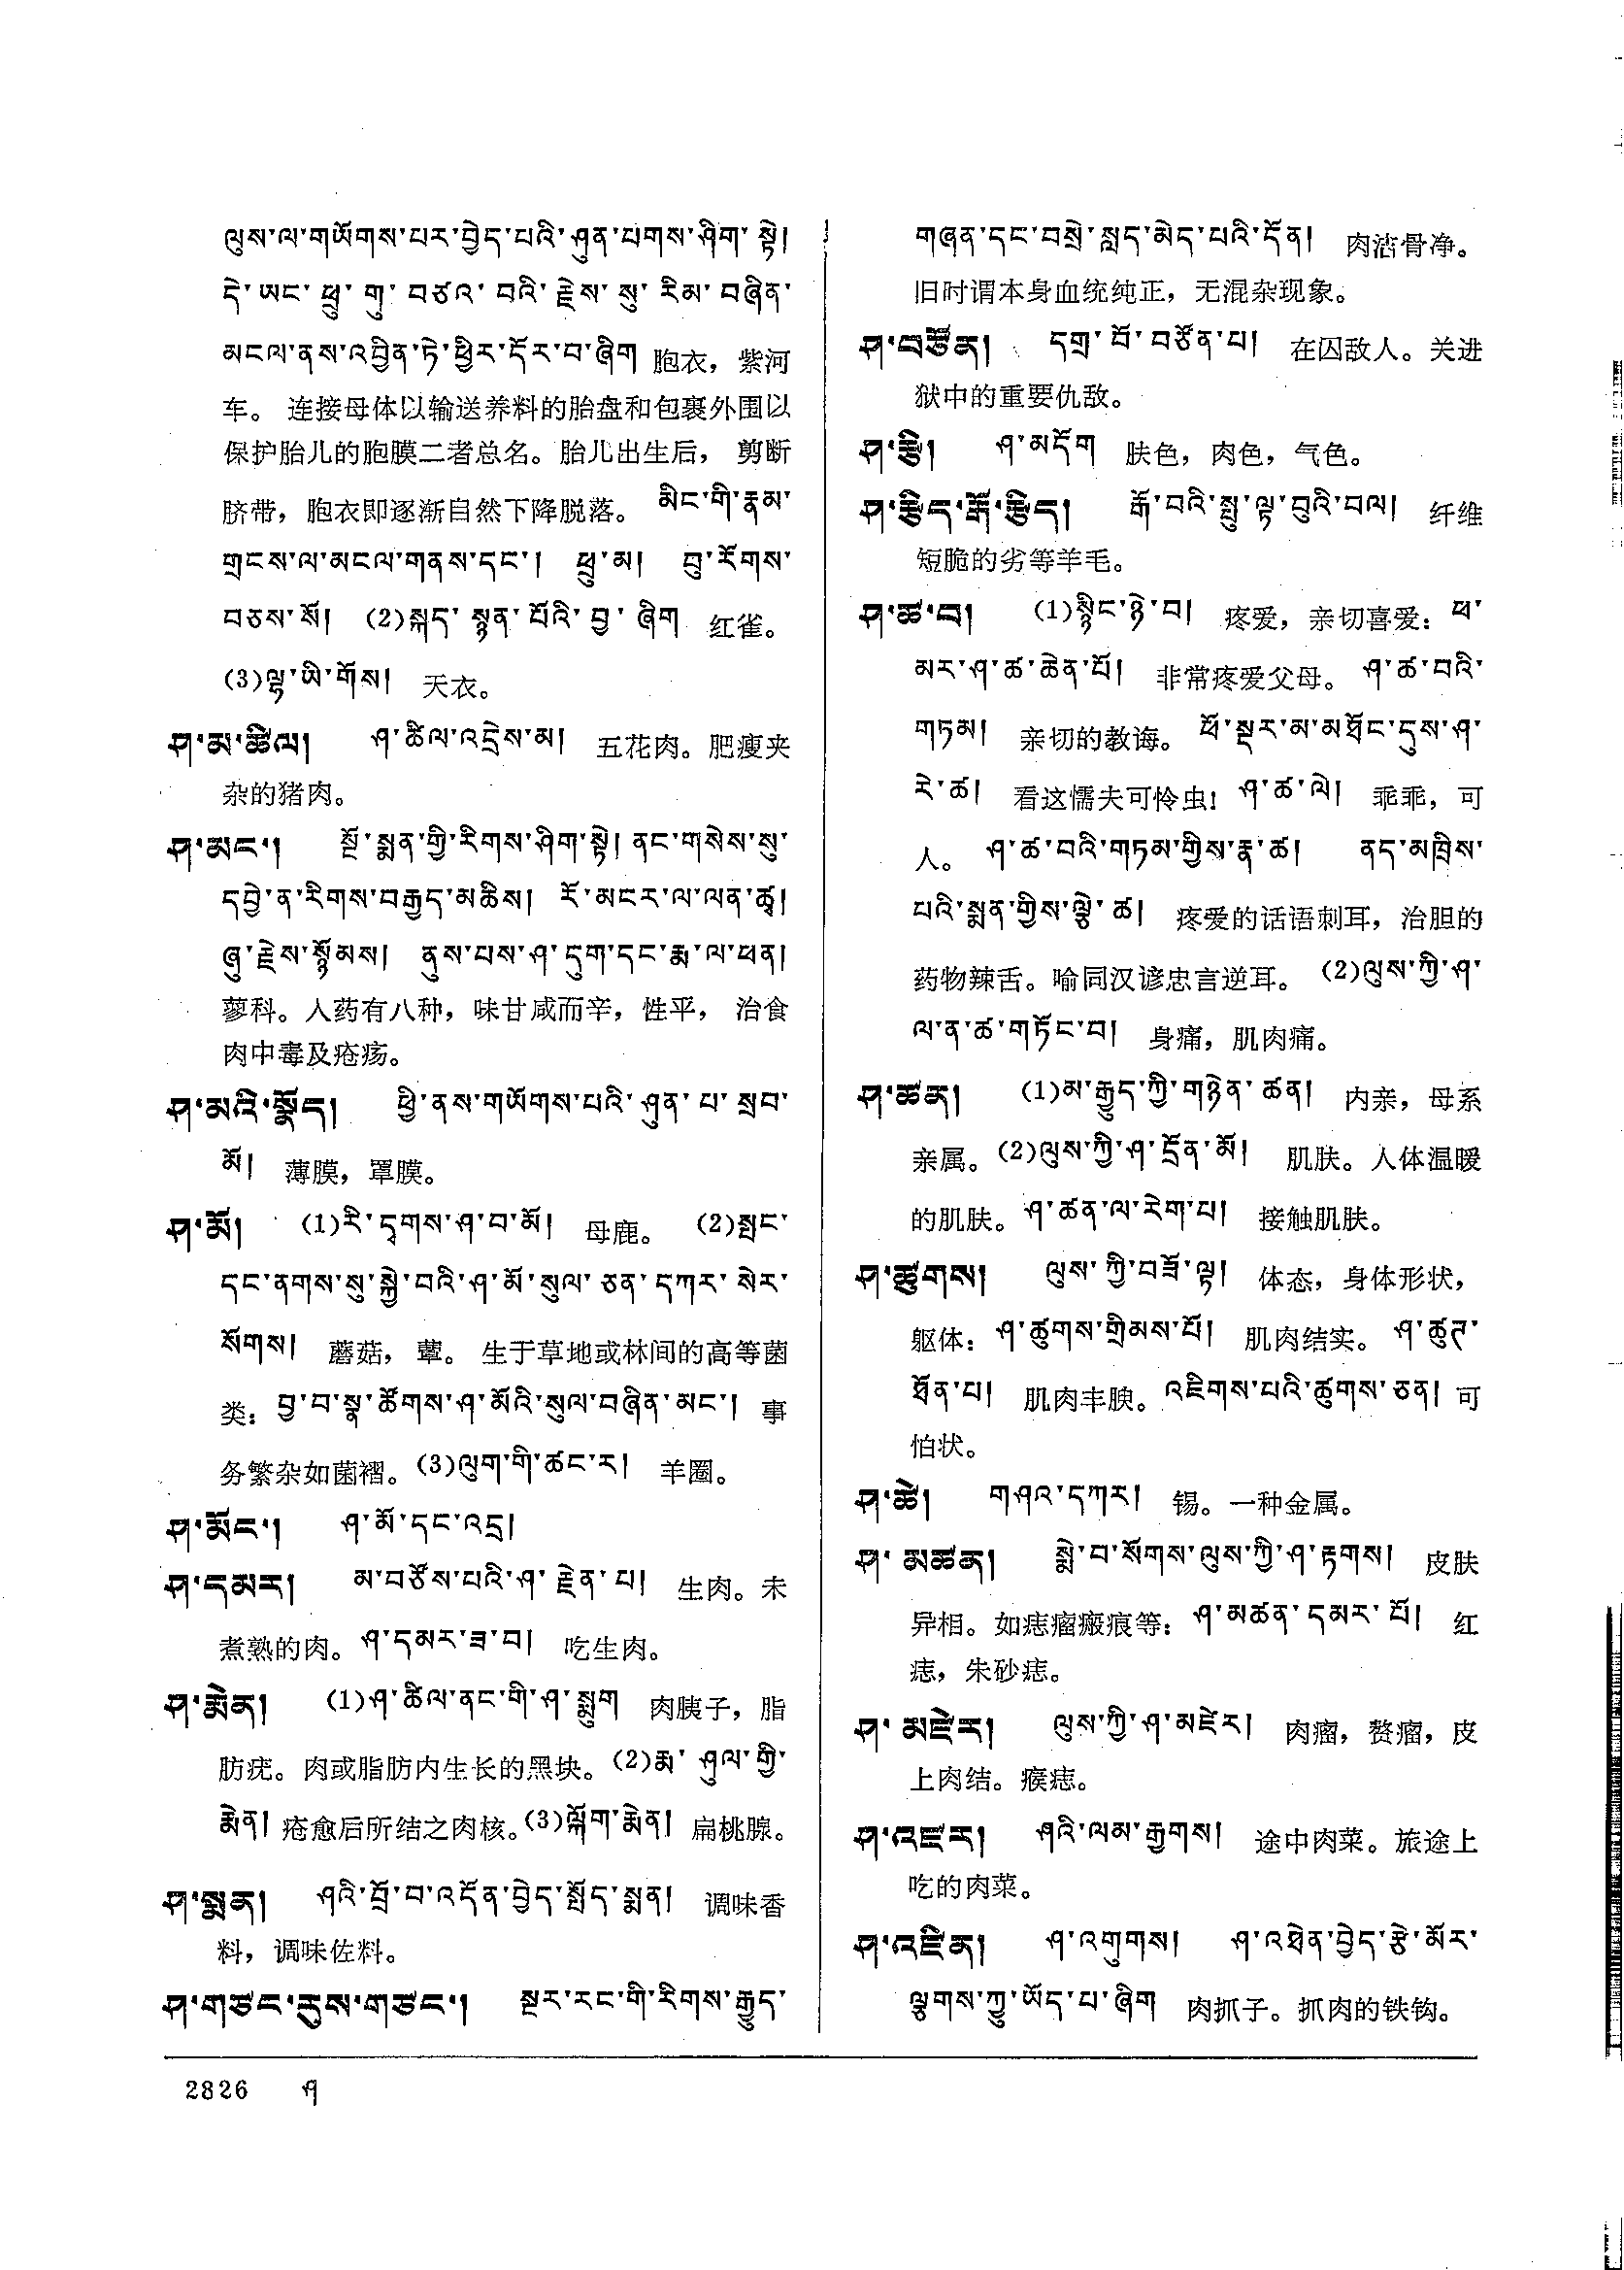 ལུས་ལ་གཡོགས་པར་བྱེད་པའི་ཤུན་པགས་ཤིག་སྟེ།
དེ་ཡང་ཕྲུ་གུ་བཙའ་བའི་རྗེས་སུ་རིམ་བཞིན་
མངལ་ནས་འབྱིན་ཏེ་ཕྱིར་དོར་བ་ཞིག 胞衣，紫河
车。 连接母体以输送养料的胎盘和包裹外围以
保护胎儿的胞膜二者总名。胎儿出生后， 剪断
脐带，胞衣即逐渐自然下降脱落。 མིང་གི་རྣམ་
གྲངས་ལ་མངལ་གནས་དང་། ཕྲུ་མ། བུ་རོགས་
བཅས་སོ། (2)སྐད་སྙན་པོའི་བྱ་ཞིག 红雀。
(3)ལྷ་ཡི་གོས། 天衣。
ཤ་མ་ཚིལ། ཤ་ཚིལ་འདྲེས་མ། 五花肉。肥瘦夹
杂的猪肉。
ཤ་མང་། སྔོ་སྨན་གྱི་རིགས་ཤིག་སྟེ། ནང་གསེས་སུ་
དབྱེ་ན་རིགས་བརྒྱད་མཆིས། རོ་མངར་ལ་ལན་ཚྭ།
ཞུ་རྗེས་སྙོམས། ནུས་པས་ཤ་དུག་དང་རྨ་ལ་ཕན།
蓼科。人药有八种，味甘咸而辛，性平， 治食
肉中毒及疮疡。
ཤ་མའི་སྣོད། ཕྱི་ནས་གཡོགས་པའི་ཤུན་པ་སྲབ་
མོ། 薄膜，罩膜。
ཤ་མོ། (1)རི་དྭགས་ཤ་བ་མོ། 母鹿。 (2)སྤང་
དང་ནགས་སུ་སྐྱེ་བའི་ཤ་མོ་སུལ་ཅན་དཀར་སེར་
སོགས། 蘑菇，蕈。 生于草地或林间的高等菌
类：བྱ་བ་སྣ་ཚོགས་ཤ་མོའི་སུལ་བཞིན་མང་། 事
务繁杂如菌褶。(3)ལུག་གི་ཚང་ར། 羊圈。
ཤ་མོང་། ཤ་མོ་དང་འདྲ།
ཤ་དམར། མ་བཙོས་པའི་ཤ་རྗེན་པ། 生肉。未
煮熟的肉。ཤ་དམར་ཟ་བ། 吃生肉。
ཤ་རྨེན། (1)ཤ་ཚིལ་ནང་གི་ཤ་སྨུག 肉胰子，脂
肪疣。肉或脂肪内生长的黑块。(2)རྨ་ཤུལ་གྱི་
རྨེན། 疮愈后所结之肉核。(3)ལྐོག་རྨེན། 扁桃腺。
ཤ་སྨན། ཤའི་བྲོ་བ་འདོན་བྱེད་སྤོད་སྨན། 调味香
料，调味佐料。
ཤ་གཙང་རུས་གཙང་། སྔར་རང་གི་རིགས་རྒྱུད་
གཞན་དང་བསྲེ་སླད་མེད་པའི་དོན། 肉洁骨净。
旧时谓本身血统纯正，无混杂现象。
ཤ་བཙོན། དགྲ་བོ་བཙོན་པ། 在囚敌人。关进
狱中的重要仇敌。
ཤ་རྩི། ཤ་མདོག 肤色，肉色，气色。
ཤ་རྩིད་རྒོ་རྩིད། རྒོ་བའི་སྤུ་ལྟ་བུའི་བལ། 纤维
短脆的劣等羊毛。
ཤ་ཚ་བ། (1)སྙིང་ཉེ་བ། 疼爱，亲切喜爱：ཕ་
མར་ཤ་ཚ་ཆེན་པོ། 非常疼爱父母。 ཤ་ཚ་བའི་
གཏམ། 亲切的教诲。 ཕོ་སྡར་མ་མཐོང་དུས་ཤ་
རེ་ཚ། 看这懦夫可怜虫！ཤ་ཚ་ལེ། 乖乖，可
人。 ཤ་ཚ་བའི་གཏམ་གྱིས་རྣ་ཚ། ནད་མཁྲིས་
པའི་སྨན་གྱིས་ལྕེ་ཚ། 疼爱的话语刺耳，治胆的
药物辣舌。喻同汉谚忠言逆耳。 (2)ལུས་ཀྱི་ཤ་
ལ་ན་ཚ་གཏོང་བ། 身痛，肌肉痛。
ཤ་ཚན། (1)མ་རྒྱུད་ཀྱི་གཉེན་ཚན། 内亲，母系
亲属。(2)ལུས་ཀྱི་ཤ་དྲོན་མོ། 肌肤。人体温暖
的肌肤。ཤ་ཚན་ལ་རེག་པ། 接触肌肤。
ཤ་ཚུགས། ལུས་ཀྱི་བཟོ་ལྟ། 体态，身体形状，
躯体：ཤ་ཚུགས་གྲིམས་པོ། 肌肉结实。 ཤ་ཚུད་
ཐོན་པ། 肌肉丰腴。འཇིགས་པའི་ཚུགས་ཅན། 可
怕状。
ཤ་ཚེ། གཤའ་དཀར། 锡。一种金属。
ཤ་མཚན། སྨེ་བ་སོགས་ལུས་ཀྱི་ཤ་རྟགས། 皮肤
异相。如痣瘤瘢痕等：ཤ་མཚན་དམར་པོ། 红
痣，朱砂痣。
ཤ་མཛེར། ལུས་ཀྱི་ཤ་མཛེར། 肉瘤，赘瘤，皮
上肉结。瘊痣。
ཤ་འཛར། ཤའི་ལམ་རྒྱགས། 途中肉菜。旅途上
吃的肉菜。
ཤ་འཛིན། ཤ་འགུགས། ཤ་འཐེན་བྱེད་རྩེ་མོར་
ལྕགས་ཀྱུ་ཡོད་པ་ཞིག 肉抓子。抓肉的铁钩。
2826 ཤ